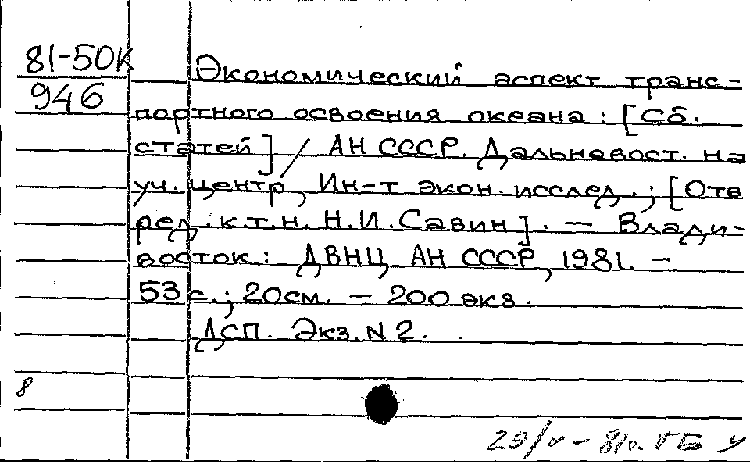 81-50К
946
Экономический аспект транс-
портного освоения океана: [Сб.
статей] / АН СССР. Дальневост. на
уч. центр, Ин-т экон. исслед.; [Отв
ред. к.т.н. Н.И. Савин]. — Влади-
восток: ДВНЦ АН СССР, 1981. —
53 с.; 20см. — 200 экз.
ДСП. Экз. N 2.
8